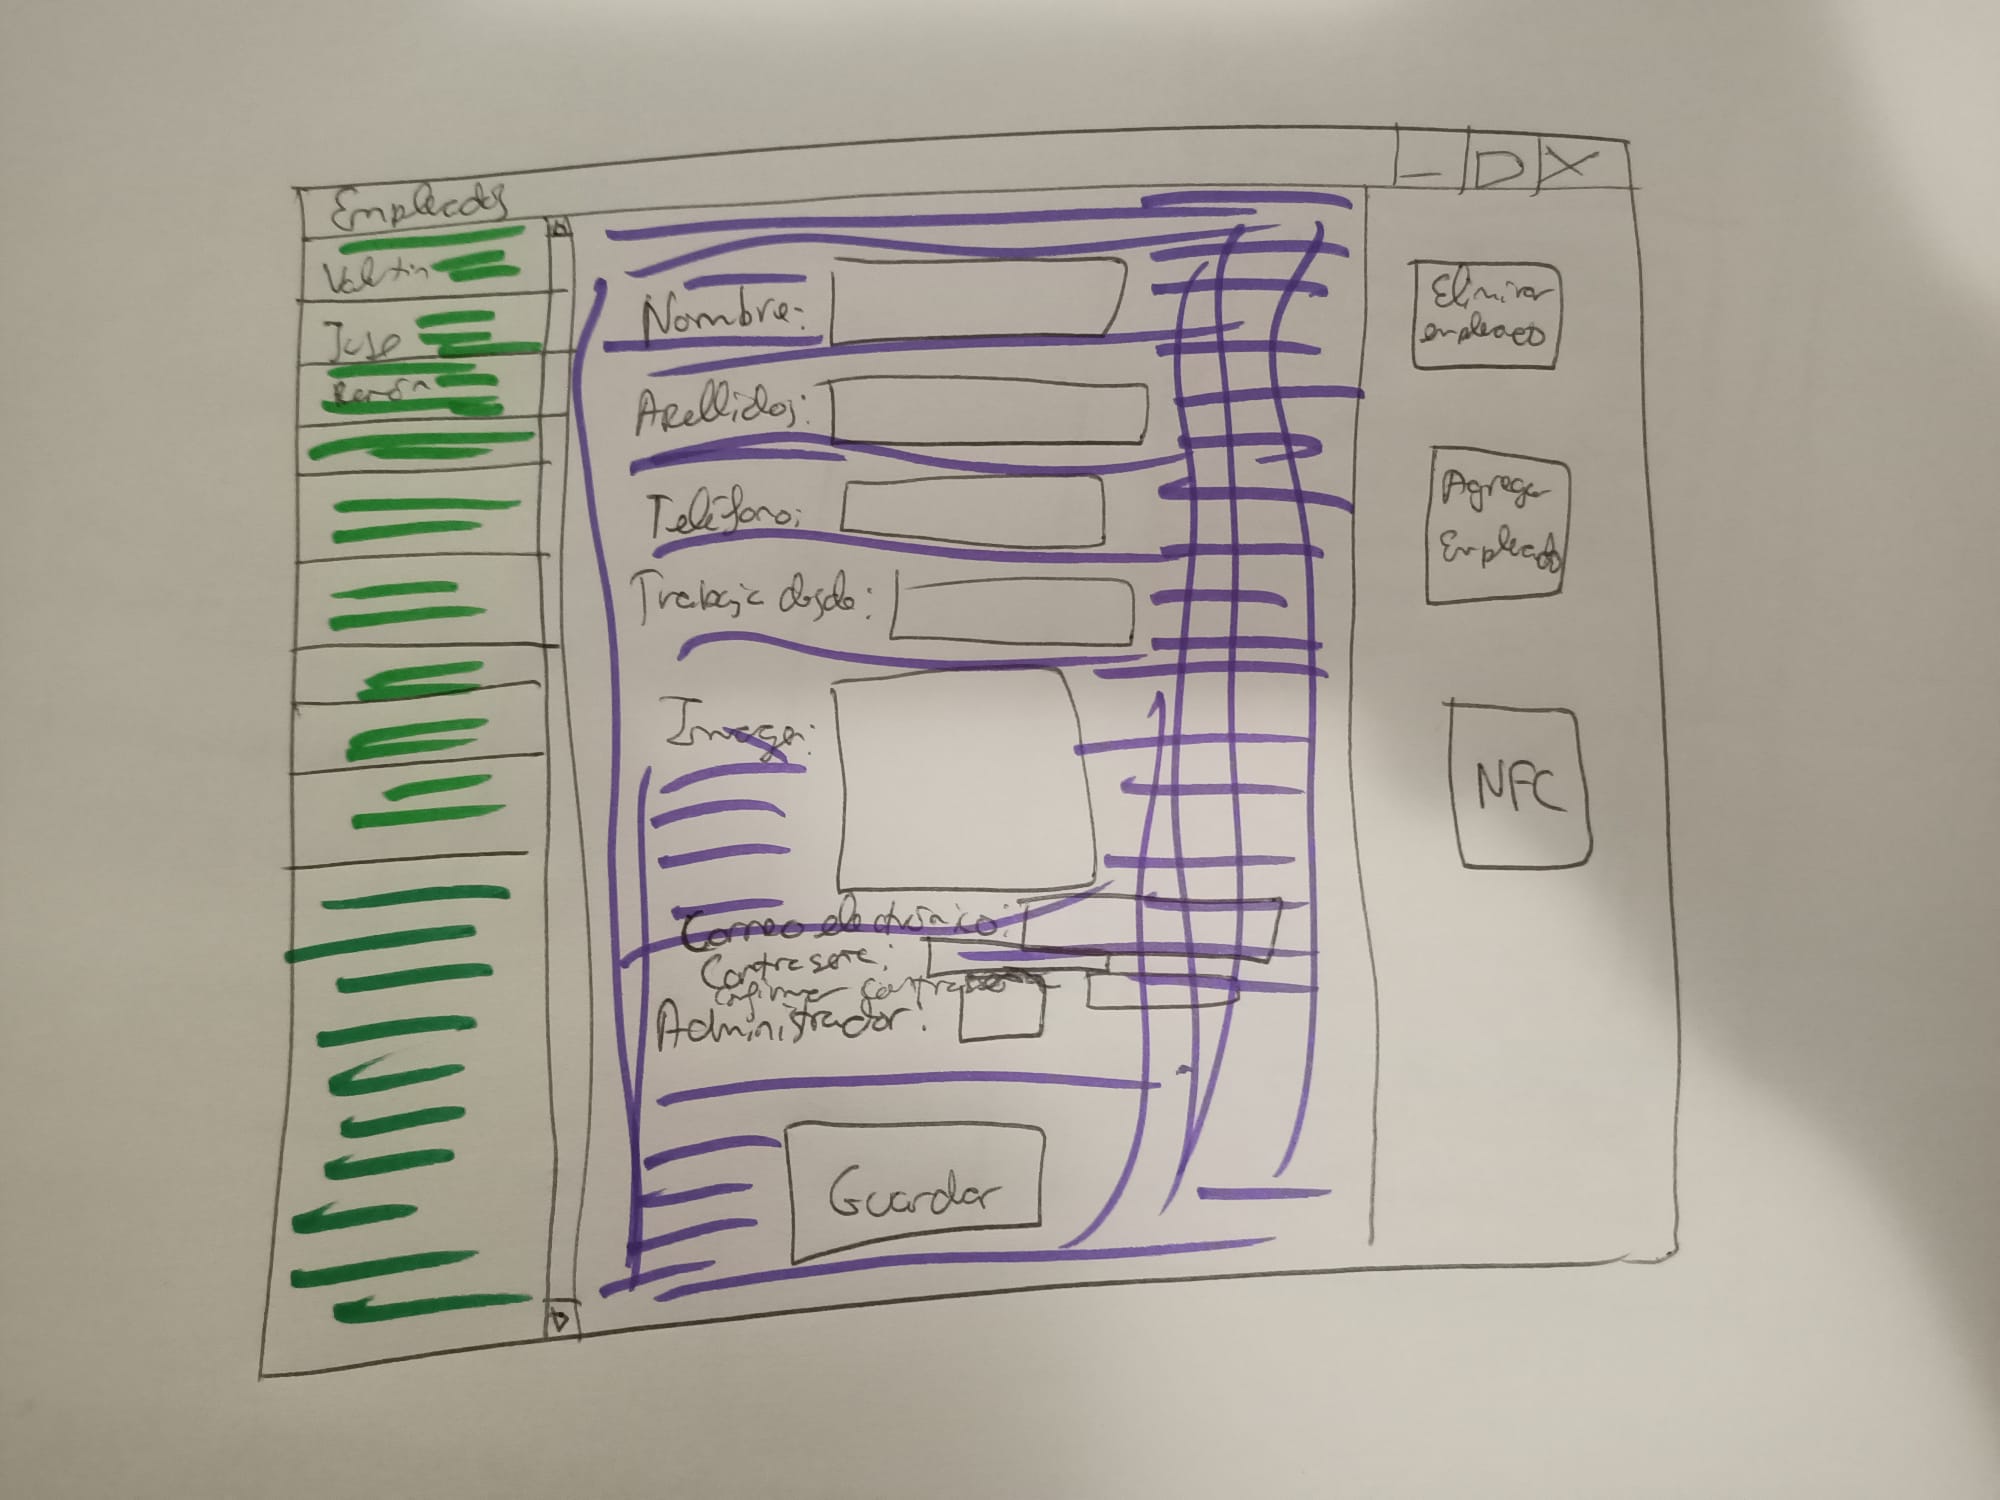 Empleados
Valentin
Jose
Ramón
Nombre:
Apellidos:
Teléfono:
Trabaja desde:
Imagen:
Correo electrónico:
Contraseña:
Confirmar contraseña
Administrador:
Guardar
Eliminar
empleado
Agregar
Empleado
NFC